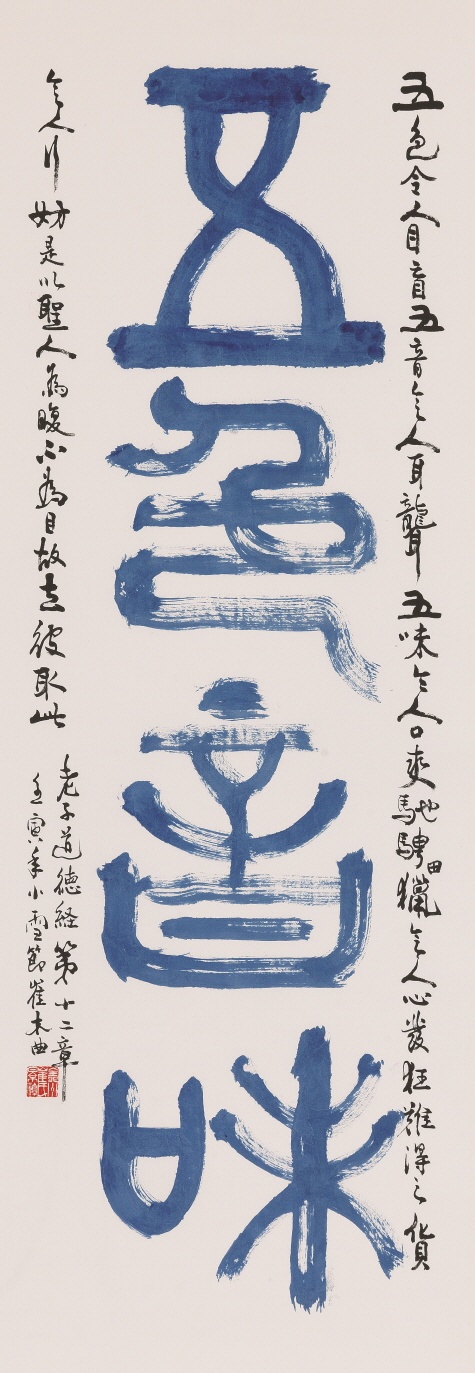 五色音味
五色令人目盲五音令人耳聾五味令人口爽馳騁田獵令人心發狂難得之貨
令人行妨是以聖人為腹不為目故去彼取此
老子道德経第十二章
壬寅年小雪節崔木曲